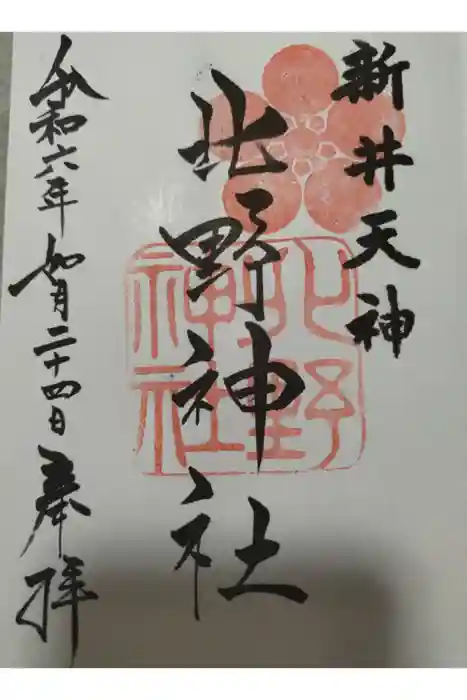 新井天神
北野神社
北野
神社
令和六年如月二十四日奉拝